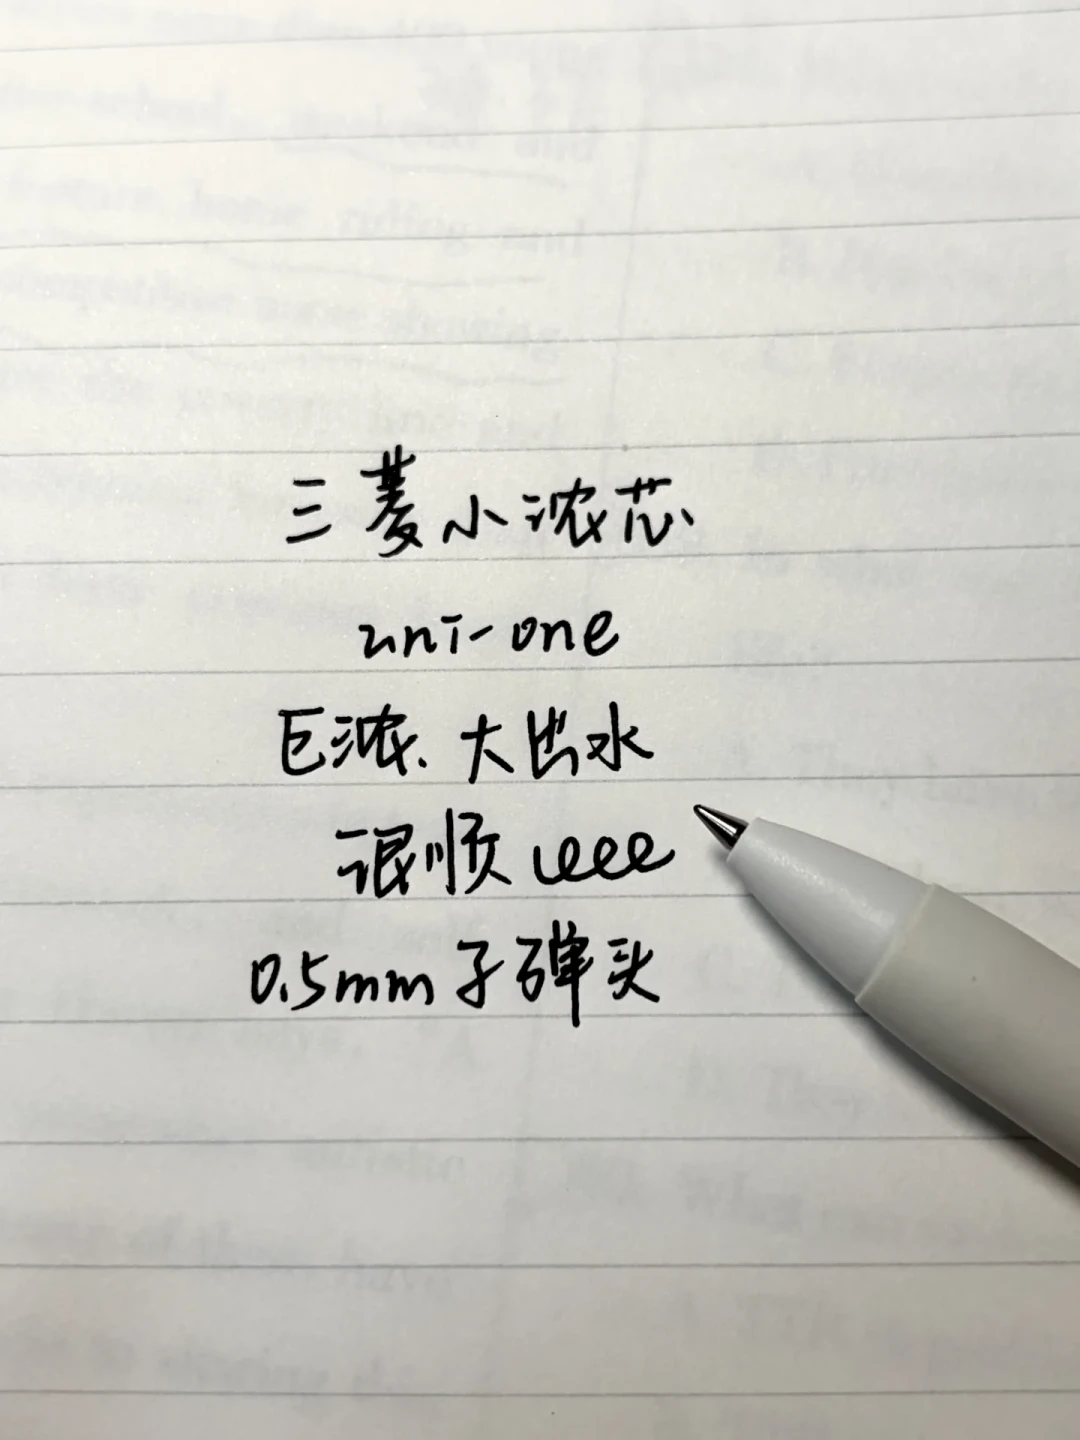 三菱小浓芯
uni-one
巨浓、大出水
很顺 eeee
0.5mm子弹头